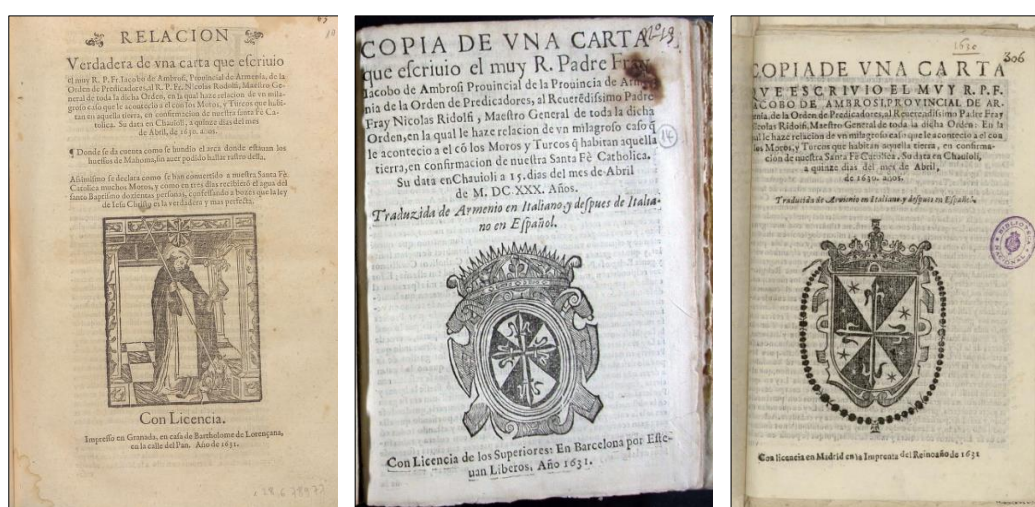 RELACION
Verdadera de vna carta que escriuio
el muy R. P. Fr. Iacobo de Ambrosi, Prouincial de Armenia, de la
Orden de Predicadores, al R. P. Fr. Nicolas Rodolfi, Maestro Ge-
neral de toda la dicha Orden, en la qual haze relacion de vn mila-
groso caso que le acontecio a el con los Moros, y Turcos que habi-
tan en aquella tierra, en confirmacion de nuestra santa Fè Ca-
tolica. Su data en Chauioli, a quinze dias del mes
de Abril, de 1630. años.
¶ Donde se da cuenta como se hundio el arca donde estauan los
huessos de Mahoma, sin auer podido hallar rastro della.
Assimismo se declara como se han conuertido a nuestra Santa Fè
Catolica muchos Moros, y como en tres dias recibierō el agua del
santo Baptismo dozientas personas, confessando a bozes que la ley
de Iesu Christo es la verdadera y mas perfecta.
Con Licencia.
Impresso en Granada, en casa de Bartholome de Lorençana,
en la calle del Pan. Año de 1631.
COPIA DE VNA CARTA
que escriuio el muy R. Padre Fray
Iacobo de Ambrosi Prouincial de la Prouincia de Arme-
nia de la Orden de Predicadores, al Reuerēdissimo Padre
Fray Nicolas Ridolfi, Maestro General de toda la dicha
Orden, en la qual le haze relacion de vn milagroso caso q̄
le acontecio a el cō los Moros y Turcos q̄ habitan aquella
tierra, en confirmacion de nuestra Santa Fè Catholica.
Su data en Chauioli a 15. dias del mes de Abril
de M. DC. XXX. Años.
Traduzida de Armenio en Italiano, y despues de Italia-
no en Español.
14
Con Licencia de los Superiores: En Barcelona por Este-
uan Liberos, Año 1631.
1630
306
COPIA DE VNA CARTA
QVE ESCRIVIO EL MVY R. P. F.
IACOBO DE AMBROSI, PROVINCIAL DE AR-
menia, de la Orden de Predicadores, al Reuerendissimo Padre Fray
Nicolas Ridolfi, Maestro General de toda la dicha Orden: En la
qual le haze relacion de vn milagroso caso que le acontecio a el con
los Moros, y Turcos que habitan aquella tierra, en confirma-
cion de nuestra Santa Fè Catolica. Su data en Chauioli,
a quinze dias del mes de Abril,
de 1630. años.
Traducida de Armenio en Italiano, y despues en Español.
Con licencia en Madrid en la Imprenta del Reino año de 1631